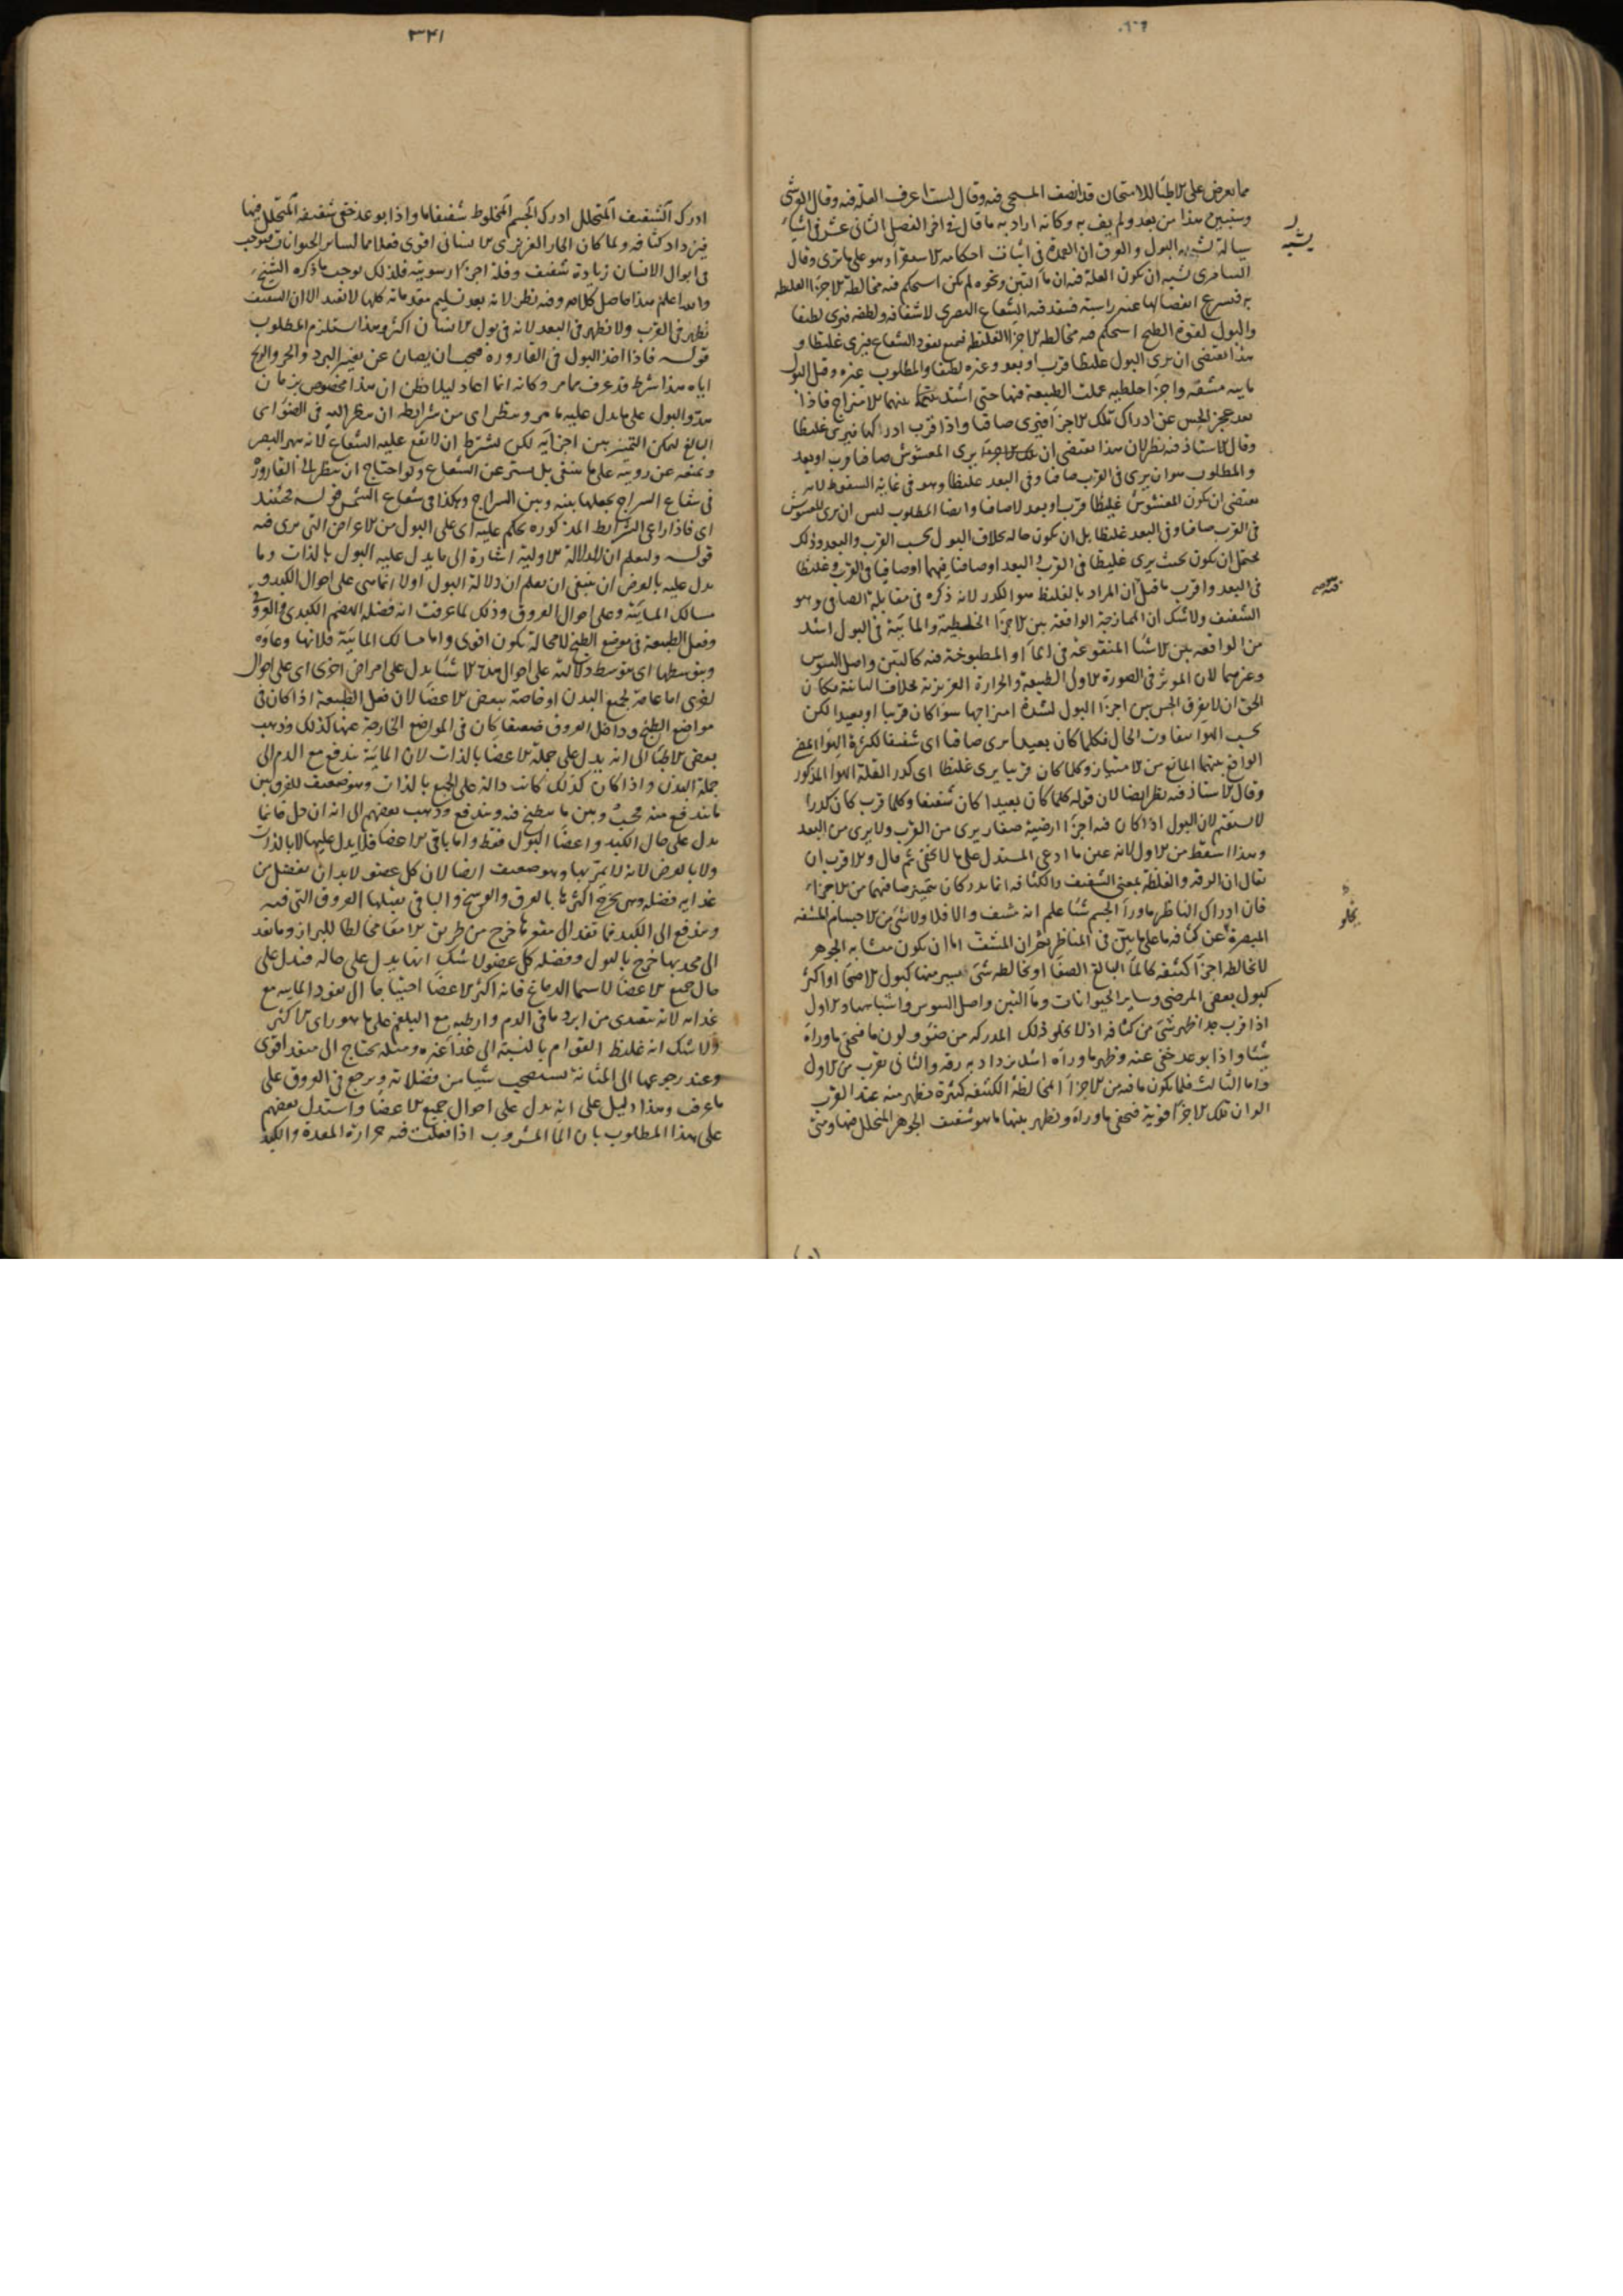 مما يعرض على الاطباء للامتحان قد انصف المسيحى فيه وقال لست اعرف العلة فيه وقال القرشى
وسنبين هذا من بعد ولم يف به وكانه اراد به ما قال فى اخر الفصل الثانى عشر فى اشياء
سيالة تشبه البول والفرق ان العمدة فى اثبات احكامه الاستقراء وهو على ما ترى وقال
السامرى يشبه ان يكون العلة فيه ان ماء التين ونحوه لم يكن استحكم فيه مخالطة الاجزاء الغليظة
به فيسرع انفصالها عنه راسبة فينفذ فيه الشعاع البصرى لاشفافه ولطفه فيرى لطيفا
والبول لقوة الطبخ استحكم فيه مخالطة الاجزاء الغليظة فيمنع نفوذ الشعاع فيرى غليظا و
هذا يقتضى ان يرى البول غليظا قرب او بعد وغيره لطيفا والمطلوب غيره وقيل البول
مائية مشفة واجزاء خلطية عملت الطبيعة فيها حتى اشتد بينهما الامتزاج فاذا
بعد عجز الحس عن ادراك تلك الاجزاء فيرى صافيا واذا قرب ادركها فيرى غليظا
وقال الاستاذ فيه نظر لان هذا يقتضى ان يرى المغشوش صافيا قرب او بعد
والمطلوب هو ان يرى فى القرب صافيا وفى البعد غليظا وهو فى غاية السقوط لانه
يقتضى ان يكون المغشوش غليظا قرب او بعد لا صافيا وايضا المطلوب ليس ان يرى المغشوش
فى القرب صافيا وفى البعد غليظا بل ان يكون حاله بخلاف البول بحسب القرب والبعد وذلك
يحتمل ان يكون بحيث يرى غليظا فى القرب والبعد او صافيا فيهما او صافيا فى القرب وغليظا
فى البعد واقرب ما قيل ان المراد بالغليظ هو الكدر لانه ذكره فى مقابلة الصافى وهو
الشفيف ولا شك ان الممازجة الواقعة بين الاجزاء الخلطية والمائية فى البول اشد
من الواقعة بين الاشياء المنقوعة فى الماء او المطبوخة فيه كالتين واصل السوس
وغيرهما لان الموثر فى الصورة الاولى الطبيعة والحرارة الغريزية بخلاف الباقية فكان
الحق ان لا يفرق الحس بين اجزاء البول لشدة امتزاجها سواء كان قريبا او بعيدا لكن
بحسب الهواء يتفاوت الحال فكلما كان بعيدا يرى صافيا اى شفيفا لكثرة الهواء المضئ
الواقع بينهما المانع من الامتياز وكلما كان قريبا يرى غليظا اى كدرا لقلة الهواء المذكور
وقال الاستاذ فيه نظر ايضا لان قوله كلما كان بعيدا كان شفيفا وكلما قرب كان كدرا
لا يستقيم لان البول اذا كان فيه اجزاء ارضية صغار يرى من القرب ولا يرى من البعد
وهذا اسقط من الاول لانه عين ما ادعى المستدل على ما لا يخفى ثم قال والاقرب ان
يقال ان الرقة والغلظة بمعنى الشفيف والكثافة انما يدركان بتميز صافيهما من الاجزاء
فان ادراك الناظر ما وراء الجسم شيئا علم انه مشف والا فلا ولا شئ من الاجسام المشفة
المبصرة عن كثافة ما على ما بين فى المناظر غير ان المشف اما ان يكون متشابه الجوهر
لا تخالطه اجزاء كثيفة كالماء البالغ الصفاء او يخالطه شئ يسير منها كبول الاصحاء او اكثر
كبول بعض المرضى وساير الحيوانات وماء التين واصل السوس واشباهها والاول
اذا قرب جدا ظهر شئ من كثافته اذ لا يخلو ذلك المدركة من ضوء ولون ما فيخفى ما وراءه
شيئا واذا بوعد خفى عنه وظهر ما وراءه اشد يزداد به رقة والثانى يقرب من الاول
واما الثالث فلما يكون ما فيه من الاجزاء المخالطة الكثيفة كثيرة فيظهر منه عند القرب
الوان تلك الاجزاء قوية فيخفى ما وراءه ويظهر بينها ما هو شفيف الجوهر المتخلل فيها ومتى
يشبه
يخلو
٣٤١
ادرك الشفيف المتخلل ادرك الجسم المخلوط شفيفا ما واذا بوعد خفى شفيفه المتخلل فيها
فيزداد كثافة ولما كان الحار الغريزى الانسانى اقوى فعلا مما لساير الحيوانات فيوجب
فى ابوال الانسان زيادة شفيف وقلة اجزاء رسوبية فلذلك يوجب ما ذكره الشيخ
والله اعلم هذا حاصل كلامه وفيه نظر لانه بعد تسليم مقدماته كلها لا يفيد الا ان الشفيف
يظهر فى القرب ولا يظهر فى البعد لانه فى بول الانسان اكثر وهذا لا يستلزم المطلوب
قوله فاذا اخذ البول فى القارورة فيجب ان يصان عن تغيير البرد والحر والريح
اياه هذا شرط قد عرف مما مر وكانه انما اعاد ليلا يظن ان هذا مخصوص بزمان
بدو البول على ما يدل عليه ما مر وينظر اى من شرايطه ان ينظر اليه فى الضوء اى
البالغ ليمكن التمييز بين اجزائه لكن بشرط ان لا يقع عليه الشعاع لانه يبهر البصر
ويمنعه عن رويته على ما ينبغى بل يستر عن الشعاع ولو احتاج ان ينظر الى القارورة
فى شعاع السراج يجعلها بينه وبين السراج وهكذا فى شعاع الشمس قوله فحينئذ
اى فاذا راعى الشرايط المذكورة يحكم عليه اى على البول من الاعراض التى يرى فيه
قوله وليعلم ان الدلالة الاولية اشارة الى ما يدل عليه البول بالذات وما
يدل عليه بالعرض اى ينبغى ان يعلم ان دلالة البول اولا انما هى على احوال الكبد و
مسالك المائية وعلى احوال العروق وذلك لما عرفت انه فضلة الهضم الكبدى والعروقى
وفعل الطبيعة فى موضع الطبخ لا محالة يكون اقوى واما مسالك المائية فلانها وعاؤه
وبتوسطها اى بتوسط دلالته على احوال هذه الاشياء يدل على امراض اخرى اى على احوال
اخرى اما عامة لجميع البدن او خاصة ببعض الاعضاء لان فعل الطبيعة اذا كان فى
مواضع الطبخ وداخل العروق ضعيفا كان فى المواضع الخارجة عنها كذلك وذهب
بعض الاطباء الى انه يدل على جملة الاعضاء بالذات لان المائية تندفع مع الدم الى
جملة البدن واذا كان كذلك كانت دالة على الجميع بالذات وهو ضعيف للفرق بين
ما يندفع منه وبين ما ينطبخ فيه ويندفع وذهب بعضهم الى انه ان دل فانما
يدل على حال الكبد واعضاء البول فقط واما باقى الاعضاء فلا يدل عليها لا بالذات
ولا بالعرض لانه لا يمر بها وهو ضعيف ايضا لان كل عضو لا بد ان يفضل من
غذايه فضلة وهى يخرج اكثرها بالعرق والوسخ والباقى يقبلها العروق التى فيه
ويندفع الى الكبد فما نفذ الى مقعرها خرج من طريق الامعاء مخالطا للبراز وما نفذ
الى محدبها خرج بالبول وفضلة كل عضو لا شك انها يدل على حاله فيدل على
حال جميع الاعضاء لا سيما الدماغ فانه اكثر الاعضاء احتياجا الى نفوذ المائية مع
غذائه لانه يتغذى من ابرد ما فى الدم وارطبه مع البلغم على ما هو راى الاكثر
ولا شك انه غليظ القوام بالنسبة الى غذاء غيره ومثله يحتاج الى منفذ اقوى
وعند رجوعها الى المثانة يستصحب شيئا من فضلاته ويرجع فى العروق على
ما عرف وهذا دليل على انه يدل على احوال جميع الاعضاء واستدل بعضهم
على هذا المطلوب بان الماء المشروب اذا فعلت فيه حرارة المعدة والكبد